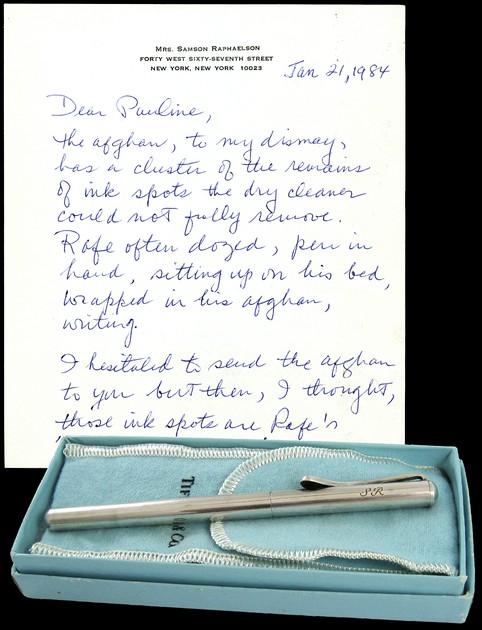 MRS. SAMSON RAPHAELSON
FORTY WEST SIXTY-SEVENTH STREET
NEW YORK, NEW YORK 10023
Jan 21, 1984
Dear Pauline,
the afghan, to my dismay,
has a cluster of the remains
of ink spots the dry cleaner
could not fully remove.
Rafe often dozed, pen in
hand, sitting up on his bed,
wrapped in his afghan,
writing.
I hesitated to send the afghan
to you but then, I thought,
those ink spots are Rafe's
SR
& Co.